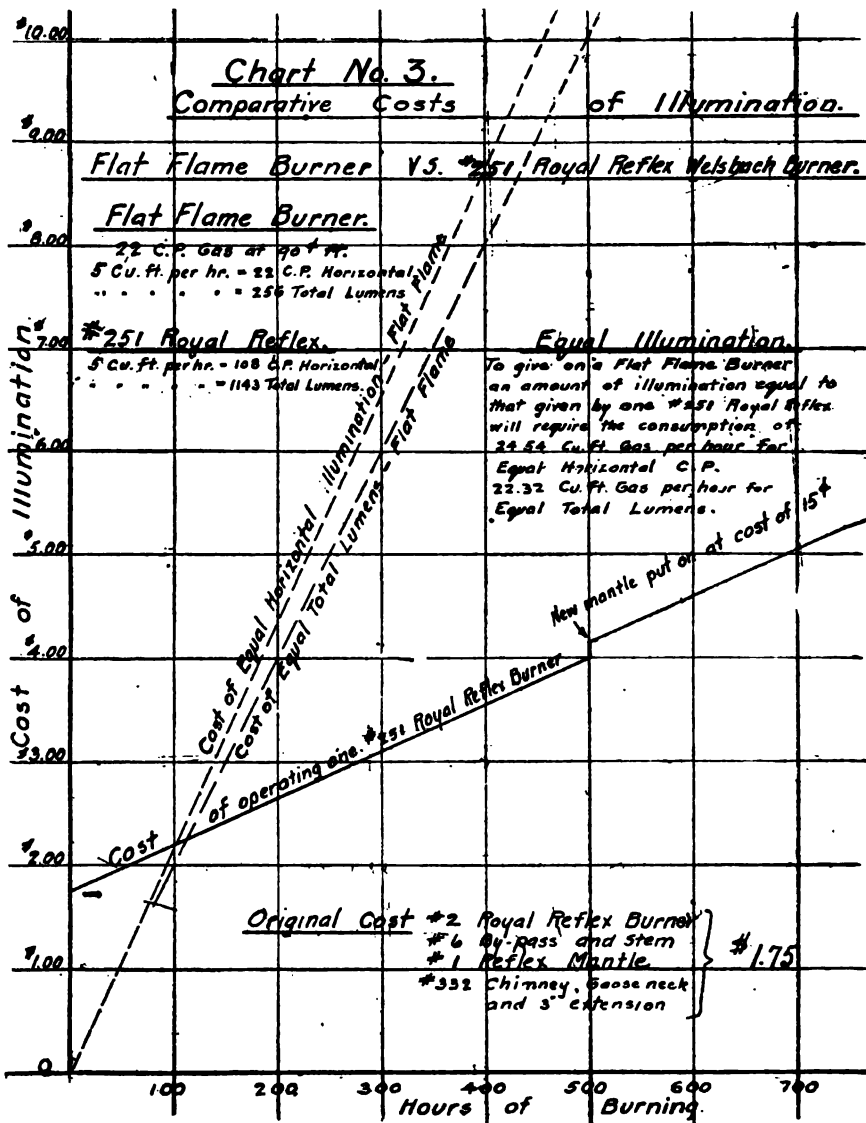 Chart No. 3.
Comparative Costs of Illumination.
Flat Flame Burner VS. #251 Royal Reflex Welsbach Burner.
Flat Flame Burner.
22 C.P. Gas at 90¢
5 Cu.ft. per hr. = 22 C.P. Horizontal
" " " " = 256 Total Lumens
#251 Royal Reflex.
5 Cu.ft. per hr. = 108 C.P. Horizontal
" " " " = 1143 Total Lumens.
Equal Illumination.
To give on a Flat Flame Burner
an amount of illumination equal to
that given by one #251 Royal Reflex
will require the consumption of
24.54 Cu.ft. Gas per hour for
Equal Horizontal C.P.
22.32 Cu.ft. Gas per hour for
Equal Total Lumens.
Cost of Equal Horizontal Illumination - Flat Flame
Cost of Equal Total Lumens - Flat Flame
New mantle put on at cost of 15¢
Cost of operating one #251 Royal Reflex Burner
Original Cost #2 Royal Reflex Burner
#6 By-pass and Stem
#1 Reflex Mantle
#332 Chimney, Gooseneck
and 3" extension
$1.75
Cost of Illumination.
$10.00
$9.00
$8.00
$7.00
$6.00
$5.00
$4.00
$3.00
$2.00
$1.00
0
100 200 300 400 500 600 700
Hours of Burning.